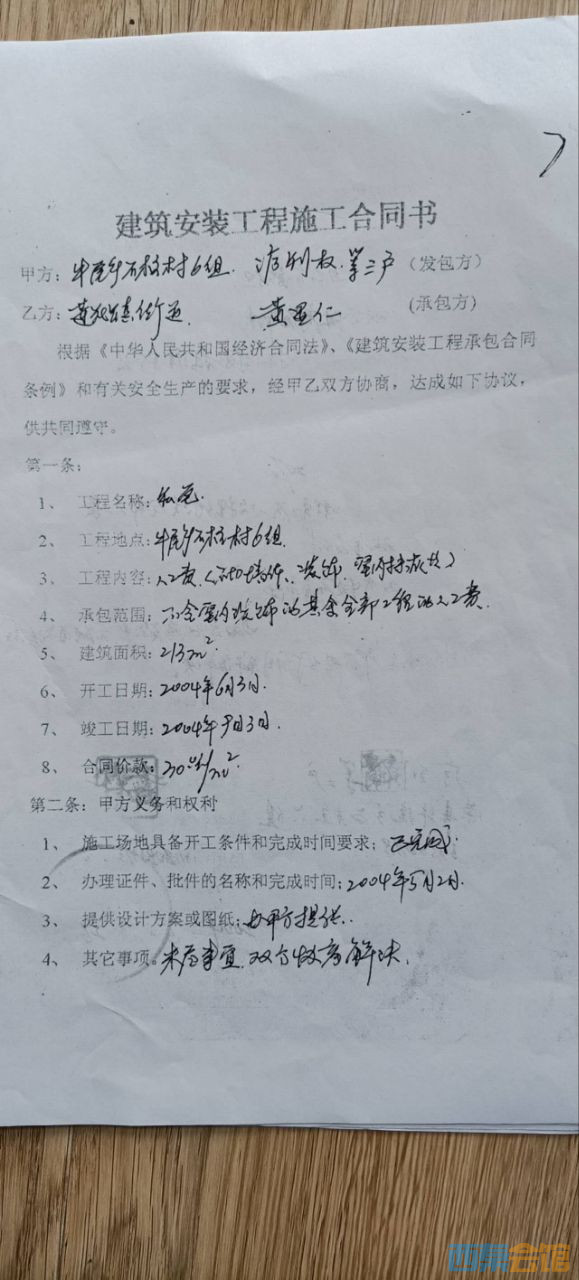 建筑安装工程施工合同书
甲方：牛尾乡石柱村6组. 权. 等三户（发包方）
乙方： 黄显仁 （承包方）
根据《中华人民共和国经济合同法》、《建筑安装工程承包合同
条例》和有关安全生产的要求，经甲乙双方协商，达成如下协议，
供共同遵守。
第一条：
1、 工程名称：私宅.
2、 工程地点：牛尾乡石柱村6组.
3、 工程内容：人工费（
4、 承包范围：不含室内装饰的其余全部工程的人工费.
5、 建筑面积：213m².
6、 开工日期：2004年6月3日.
7、 竣工日期：2004年9月3日.
8、 合同价款： /m²
第二条：甲方义务和权利
1、 施工场地具备开工条件和完成时间要求：已完成.
2、 办理证件、批件的名称和完成时间：2004年5月2日.
3、 提供设计方案或图纸：由甲方提供.
4、 其它事项。未尽事宜.双方 解决.
西祠会馆